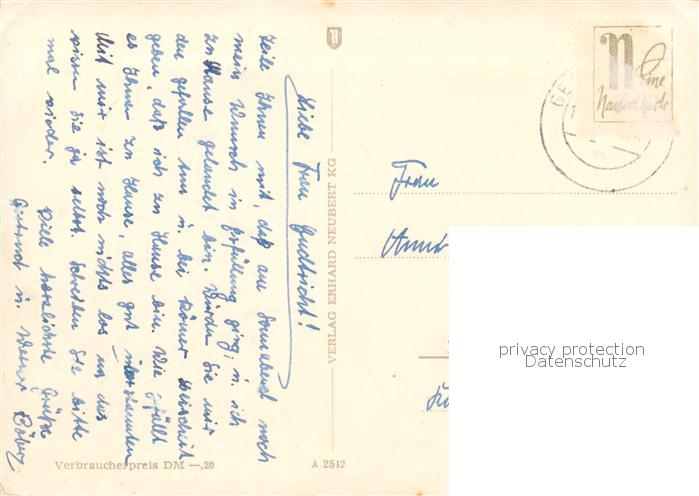 Liebe Frau
teile Ihnen mit, daß am Sonnabend noch
mein Wunsch in Erfüllung ging, u. ich
zu Hause gelandet bin. Würden Sie mir
den gefallen tun u. bei Bescheid
geben, daß ich zu Hause bin. Wie gefällt
es Ihnen zu Hause, alles gut überstanden
Mit mir ist noch nichts los un das
wissen Sie ja selbst. Schreiben Sie bitte
mal wieder.
Viele herzlichste Grüße
u. Werner
VERLAG ERHARD NEUBERT KG
Verbraucherpreis DM —,20
A 2542
N
Eine
Neubert Karte
GE
Frau
privacy protection
Datenschutz